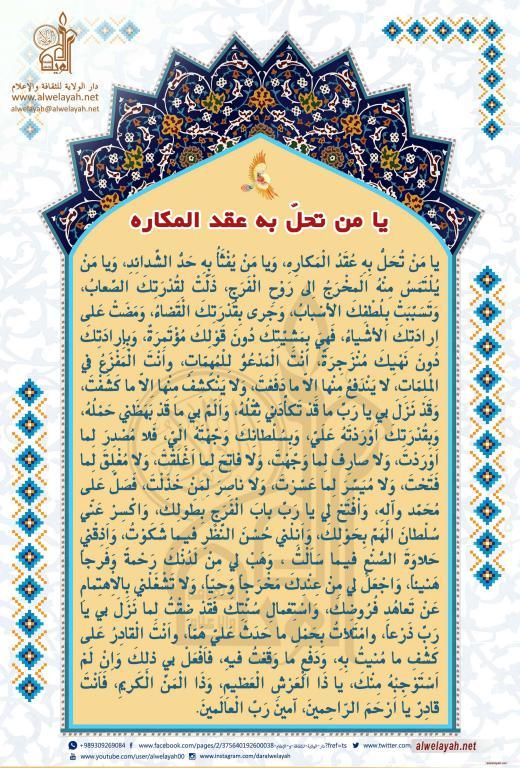 دار الولاية للثقافة والإعلام
www.alwelayah.net
alwelayah@alwelayah.net
يا من تحلّ به عقد المكاره
يا مَنْ تُحَلُّ بِهِ عُقَدُ الْمَكارِهِ، وَيا مَنْ يُفْثَأُ بِهِ حَدُّ الشَّدائِدِ، وَيا مَنْ
يُلْتَمَسُ مِنْهُ الْمَخْرَجُ اِلى رَوْحِ الْفَرَجِ، ذَلَّتْ لِقُدْرَتِكَ الصِّعابُ،
وَتَسَبَّبَتْ بِلُطْفِكَ الأَسْبابُ، وَجَرى بِقُدْرَتِكَ الْقَضاءُ، وَمَضَتْ عَلى
اِرادَتِكَ الأَشْياءُ، فَهِيَ بِمَشِيَّتِكَ دُونَ قَوْلِكَ مُؤْتَمِرَةٌ، وَبِاِرادَتِكَ
دُونَ نَهْيِكَ مُنْزَجِرَةٌ، اَنْتَ الْمَدْعُوُّ لِلْمُهِمّاتِ، وَاَنْتَ الْمَفْزَعُ فِي
الْمُلِمّاتِ، لا يَنْدَفِعُ مِنْها اِلاّ ما دَفَعْتَ، وَلا يَنْكَشِفُ مِنْها اِلاّ ما كَشَفْتَ،
وَقَدْ نَزَلَ بي يا رَبِّ ما قَدْ تَكَأَّدَني ثِقْلُهُ، وَاَلَمَّ بي ما قَدْ بَهَظَني حَمْلُهُ،
وَبِقُدْرَتِكَ اَوْرَدْتَهُ عَلَيَّ، وَبِسُلْطانِكَ وَجَّهْتَهُ اِلَيَّ، فَلا مُصْدِرَ لِما
اَوْرَدْتَ، وَلا صارِفَ لِما وَجَّهْتَ، وَلا فاتِحَ لِما اَغْلَقْتَ، وَلا مُغْلِقَ لِما
فَتَحْتَ، وَلا مُيَسِّرَ لِما عَسَّرْتَ، وَلا ناصِرَ لِمَنْ خَذَلْتَ، فَصَلِّ عَلى
مُحَمَّد وَآلِهِ، وَافْتَحْ لي يا رَبِّ بابَ الْفَرَجِ بِطَوْلِكَ، وَاكْسِرْ عَنّي
سُلْطانَ الْهَمِّ بِحَوْلِكَ، وَاَنِلْني حُسْنَ النَّظَرِ فيما شَكَوْتُ، وَاَذِقْني
حَلاوَةَ الصُّنْعِ فيما سَأَلْتُ، وَهَبْ لي مِنْ لَدُنْكَ رَحْمَةً وَفَرَجاً
هَنيئاً، وَاجْعَلْ لي مِنْ عِنْدِكَ مَخْرَجاً وَحِيّاً، وَلا تَشْغَلْني بِالاِهْتِمامِ
عَنْ تَعاهُدِ فُرُوضِكَ، وَاسْتِعْمالِ سُنَّتِكَ فَقَدْ ضِقْتُ لِما نَزَلَ بي يا
رَبِّ ذَرْعاً، وَامْتَلأْتُ بِحَمْلِ ما حَدَثَ عَلَيَّ هَمّاً، وَاَنْتَ الْقادِرُ عَلى
كَشْفِ ما مُنيتُ بِهِ، وَدَفْعِ ما وَقَعْتُ فيهِ، فَافْعَلْ بي ذلِكَ وَاِنْ لَمْ
اَسْتَوْجِبْهُ مِنْكَ، يا ذَا الْعَرْشِ الْعَظيمِ، وَذَا الْمَنِّ الْكَريمِ، فَاَنْتَ
قادِرٌ يا اَرْحَمَ الرّاحِمينَ، آمينَ رَبَّ الْعالَمينَ.
+989309269084 www.facebook.com/pages/دار-الولاية-للثقافة-و-الإعلام/375640192600038/2?fref=ts www.twitter.com alwelayah.net
www.youtube.com/user/alwelayah00 www.instagram.com/daralwelayah